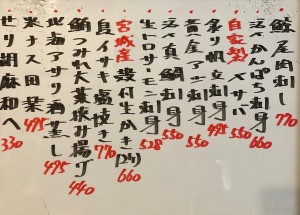 鯨尾肉刺し 660
活〆かんぱち刺身 550
自家製〆サバ 550
炙り帆立刺身 495
青屋アジ刺身 550
活〆真鯛刺身 550
生トロサーモン刺身 528
宮城産殻付生かき(2ヶ) 660
島イサキ塩焼き 770
鮪ひれ大葉挟み揚げ 440
北海アサリ酒蒸し 495
米ナス田楽 495
せり胡麻和へ 330